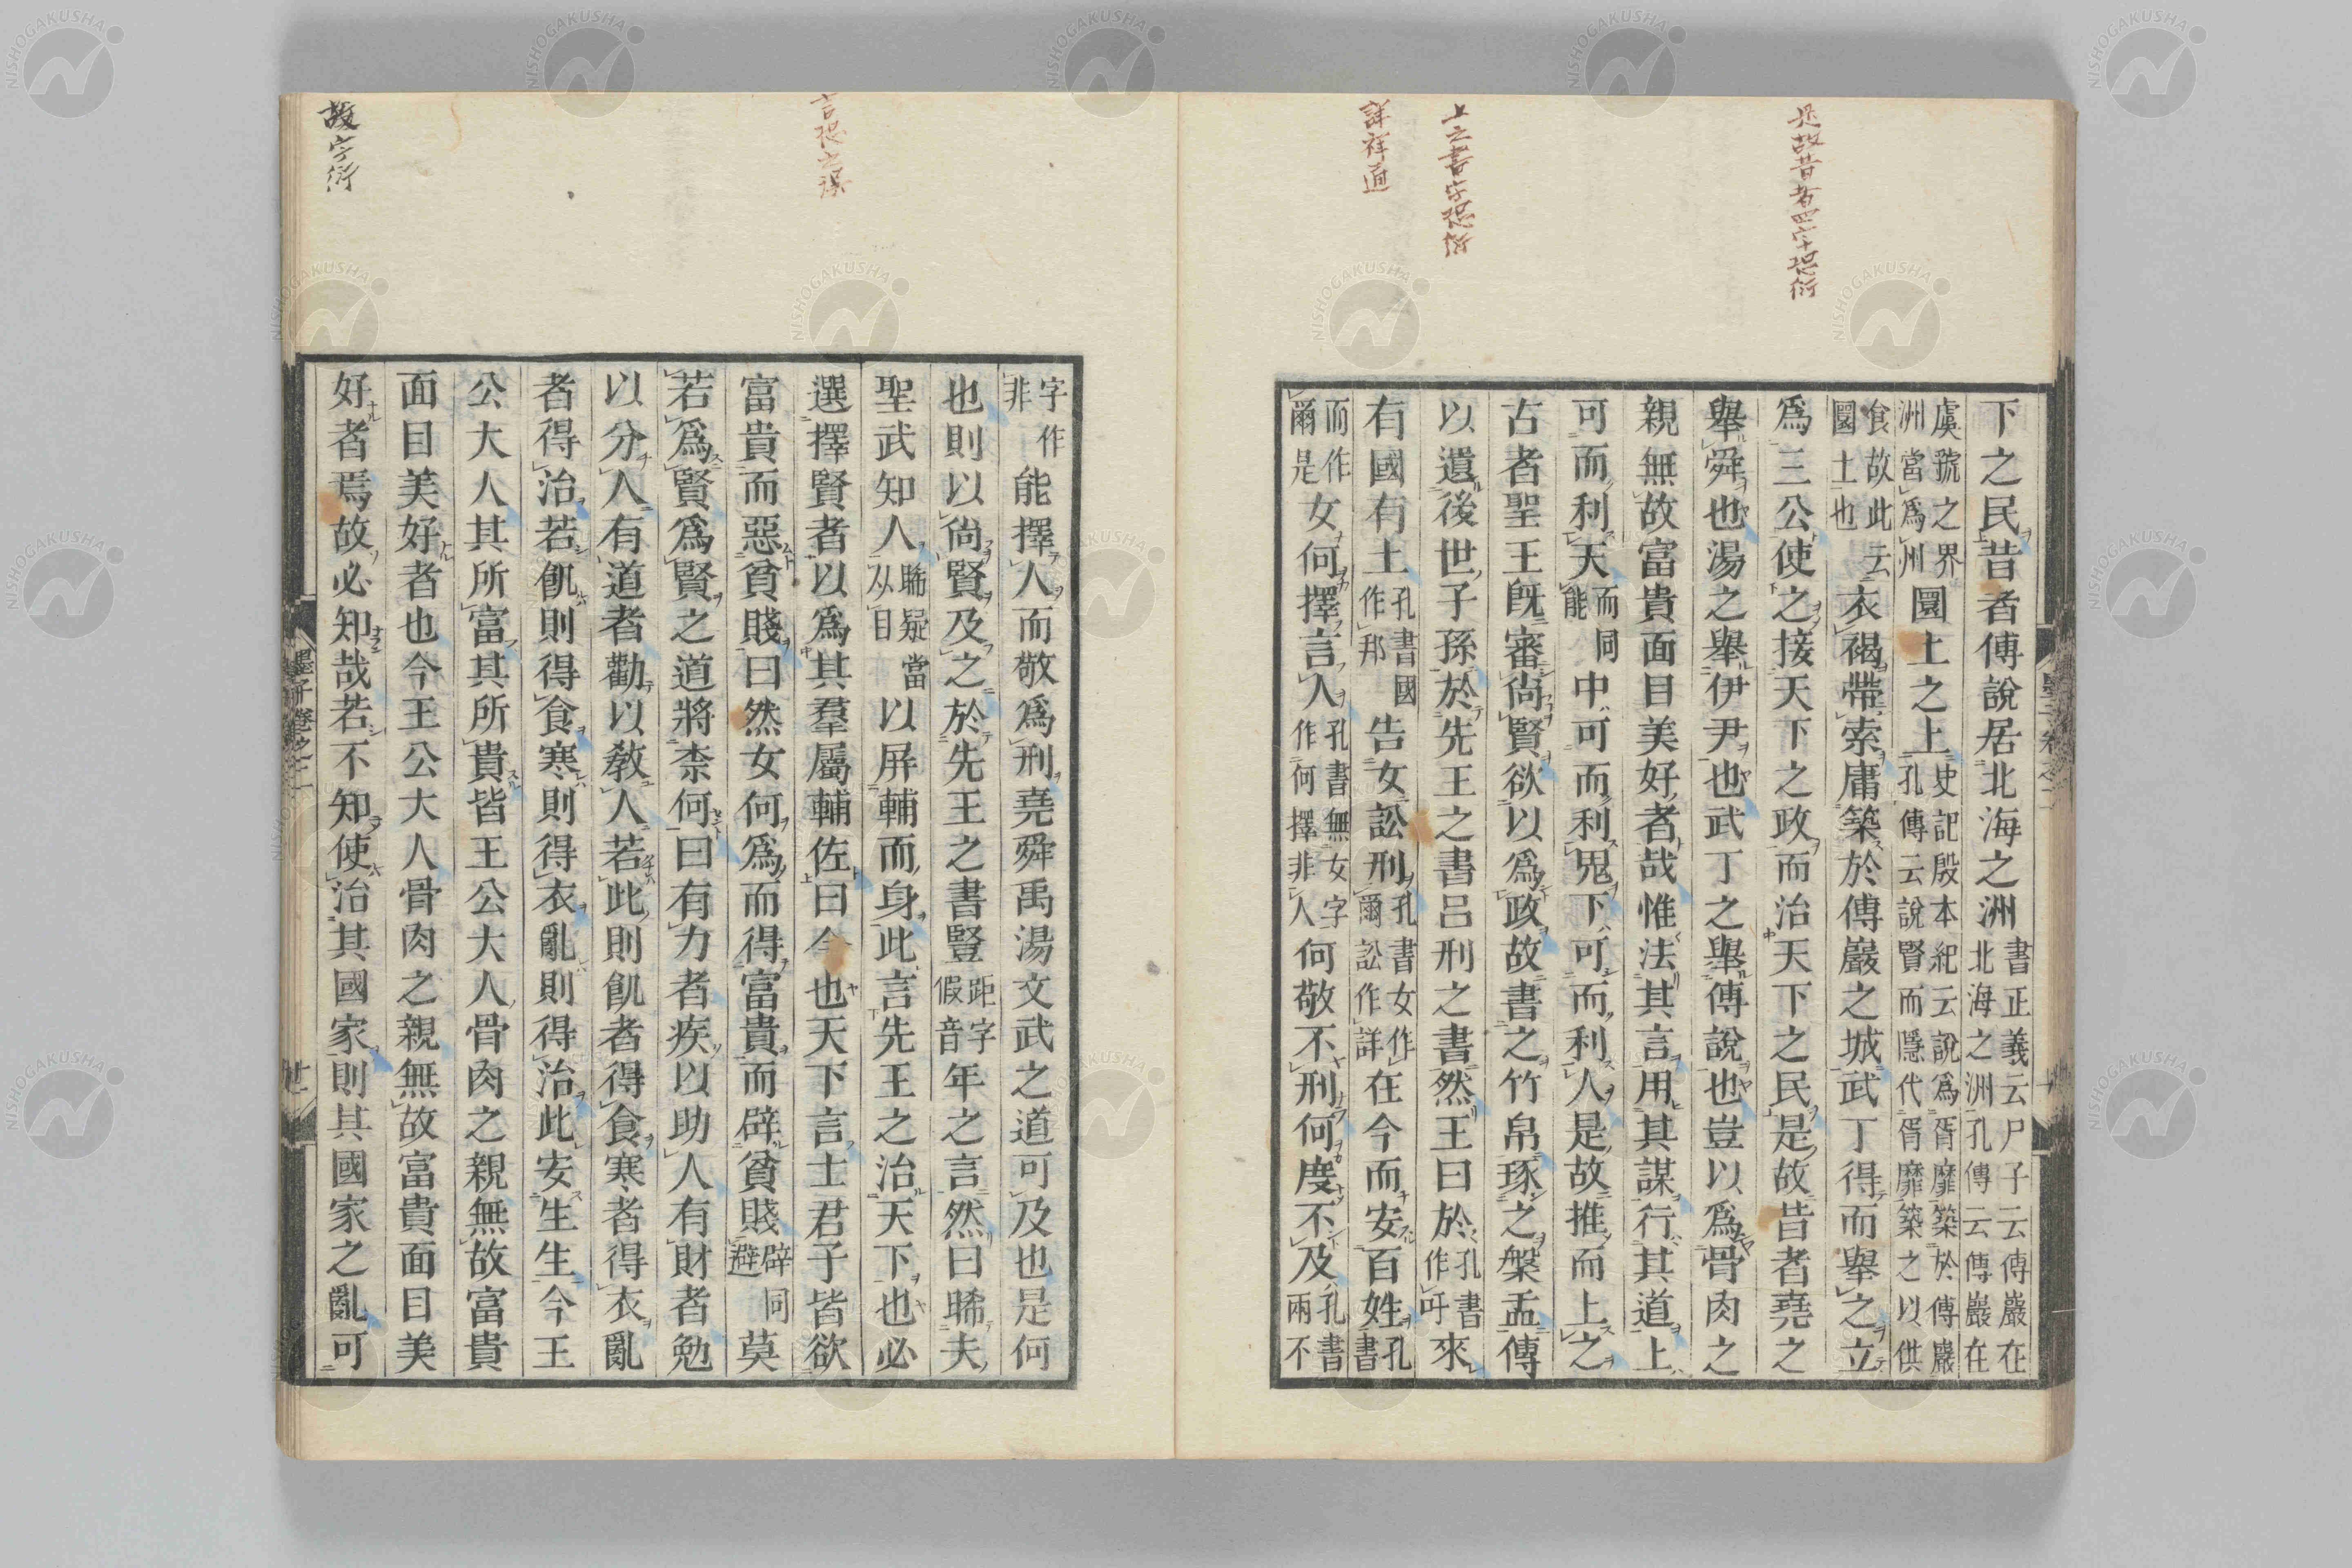 是故昔者四字恐衍
上之書字恐衍
詳祥通
下之民昔者傅說居北海之洲書正義云尸子云傅巖在北海之洲孔傳云傅巖在
虞虢之界洲當爲州圜土之上史記殷本紀云說爲胥靡築於傅巖孔傳云說賢而隱代胥靡築之以供
食故此云圜土也衣褐帶索庸築於傅巖之城武丁得而舉之立
爲三公使之接天下之政而治天下之民是故昔者堯之
舉舜也湯之舉伊尹也武丁之舉傅說也豈以爲骨肉之
親無故富貴面目美好者哉惟法其言用其謀行其道上
可而利天而同能中可而利鬼下可而利人是故推而上之
古者聖王既審尚賢欲以爲政故書之竹帛琢之槃盂傳
以遺後世子孫於先王之書呂刑之書然王曰於孔書作吁來
有國有土孔書國作邦告女訟刑孔書女作爾訟作詳在今而安百姓孔書
而作爾是女何擇言人孔書無女字作何擇非人何敬不刑何度不及孔書兩不
字作非能擇人而敬爲刑堯舜禹湯文武之道可及也是何
也則以尚賢及之於先王之書豎距字假音年之言然曰晞夫
聖武知人晞疑當从目以屏輔而身此言先王之治天下也必
選擇賢者以爲其羣屬輔佐曰今也天下言士君子皆欲
富貴而惡貧賤曰然女何爲而得富貴而辟貧賤辟同避莫
若爲賢爲賢之道將柰何曰有力者疾以助人有財者勉
以分人有道者勸以教人若此則飢者得食寒者得衣亂
者得治若飢則得食寒則得衣亂則得治此安生生今王
公大人其所富其所貴皆王公大人骨肉之親無故富貴
面目美好者也今王公大人骨肉之親無故富貴面目美
好者焉故必知哉若不知使治其國家則其國家之亂可
墨子卷之二
言恐之誤
故字衍